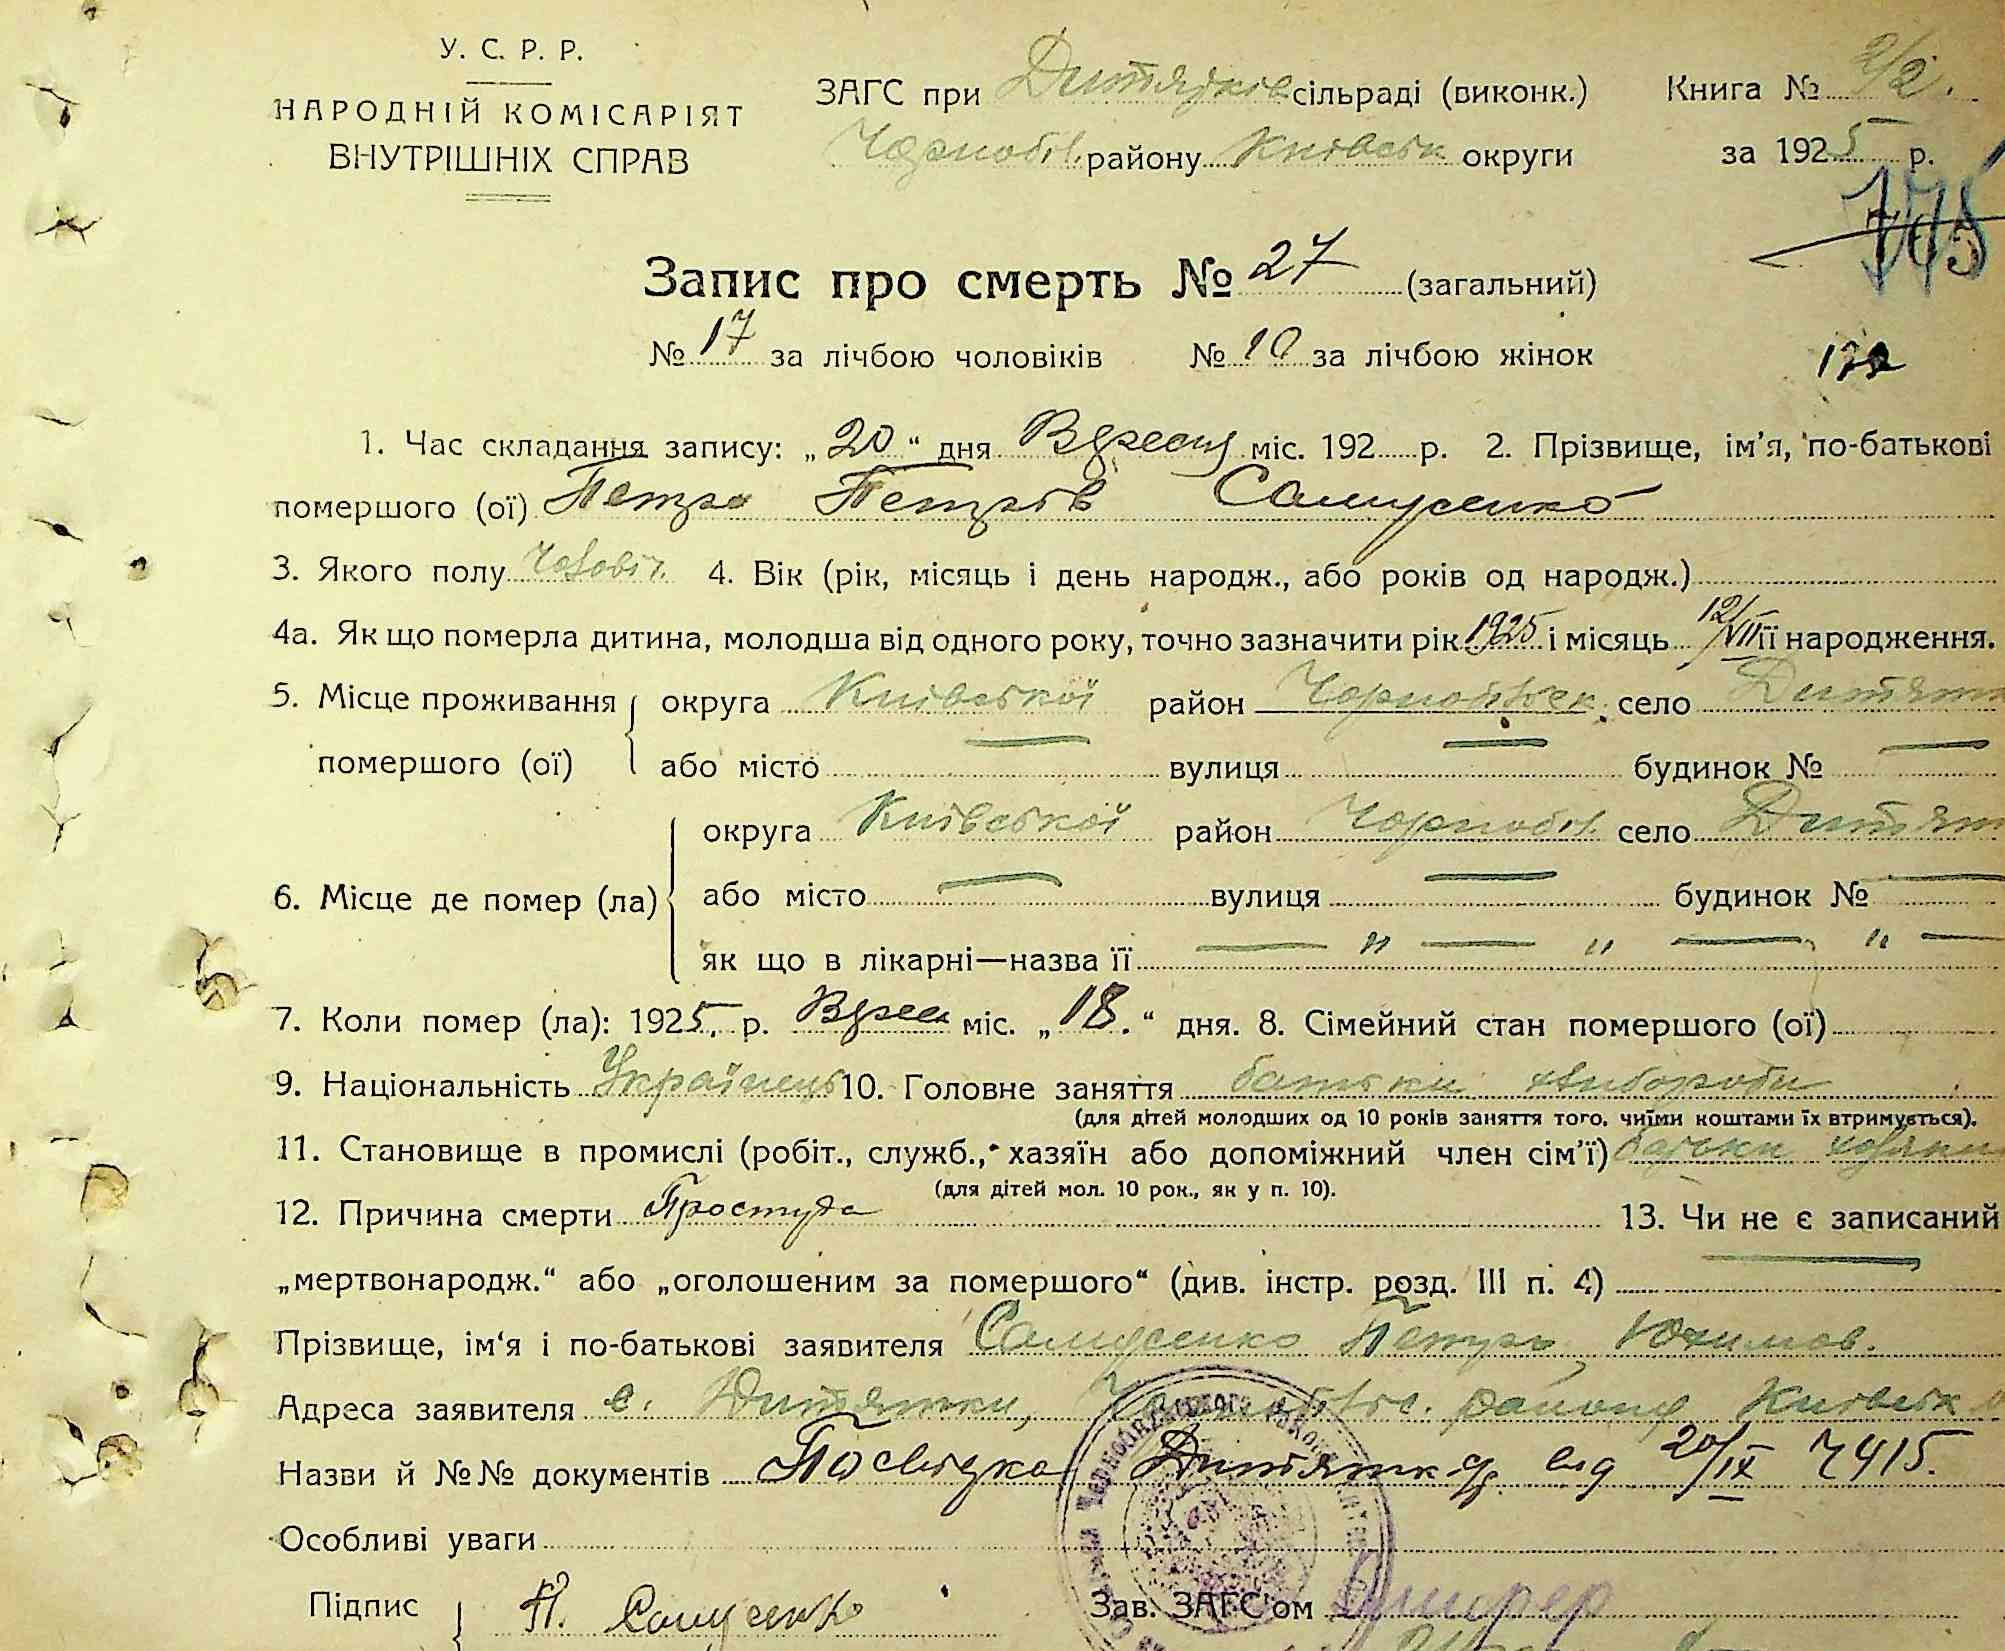 У. С. Р. Р.
НАРОДНІЙ КОМІСАРІЯТ
ВНУТРІШНІХ СПРАВ
ЗАГС при Дитятків сільраді (виконк.)
Чорнобил. району Київськ округи
Книга № 2/2.
за 1925 р.
Запис про смерть № 27 (загальний)
№ 17 за лічбою чоловіків № 10 за лічбою жінок
1. Час складання запису: „20“ дня Вересня міс. 192 р. 2. Прізвище, ім'я, по-батькові
помершого (ої) Петро Петрів Самусенко
3. Якого полу чоловіч. 4. Вік (рік, місяць і день народж., або років од народж.)
4а. Як що померла дитина, молодша від одного року, точно зазначити рік 1925 і місяць 12/VII її народження.
5. Місце проживання помершого (ої)
округа Київської район Чорнобильск. село Дитятк
або місто — вулиця — будинок № —
6. Місце де помер (ла)
округа Київської район Чорнобил. село Дитятк
або місто — вулиця — будинок № —
як що в лікарні—назва її — „ — „ — „ —
7. Коли помер (ла): 1925 р. Верес міс. „18.“ дня. 8. Сімейний стан помершого (ої)
9. Національність Українець 10. Головне заняття батьки хлібороби
(для дітей молодших од 10 років заняття того, чиїми коштами їх втримується).
11. Становище в промислі (робіт., служб., хазяїн або допоміжний член сім'ї) батьки
(для дітей мол. 10 рок., як у п. 10).
12. Причина смерти Простуда 13. Чи не є записаний
„мертвонародж.“ або „оголошеним за помершого“ (див. інстр. розд. III п. 4) —
Прізвище, ім'я і по-батькові заявителя Самусенко Петро Юхимов.
Адреса заявителя с. Дитятки, району Київськ
Назви й №№ документів Посвідка від 20/IX
Особливі уваги
Підпис П. Самусенко Зав. ЗАГС'ом